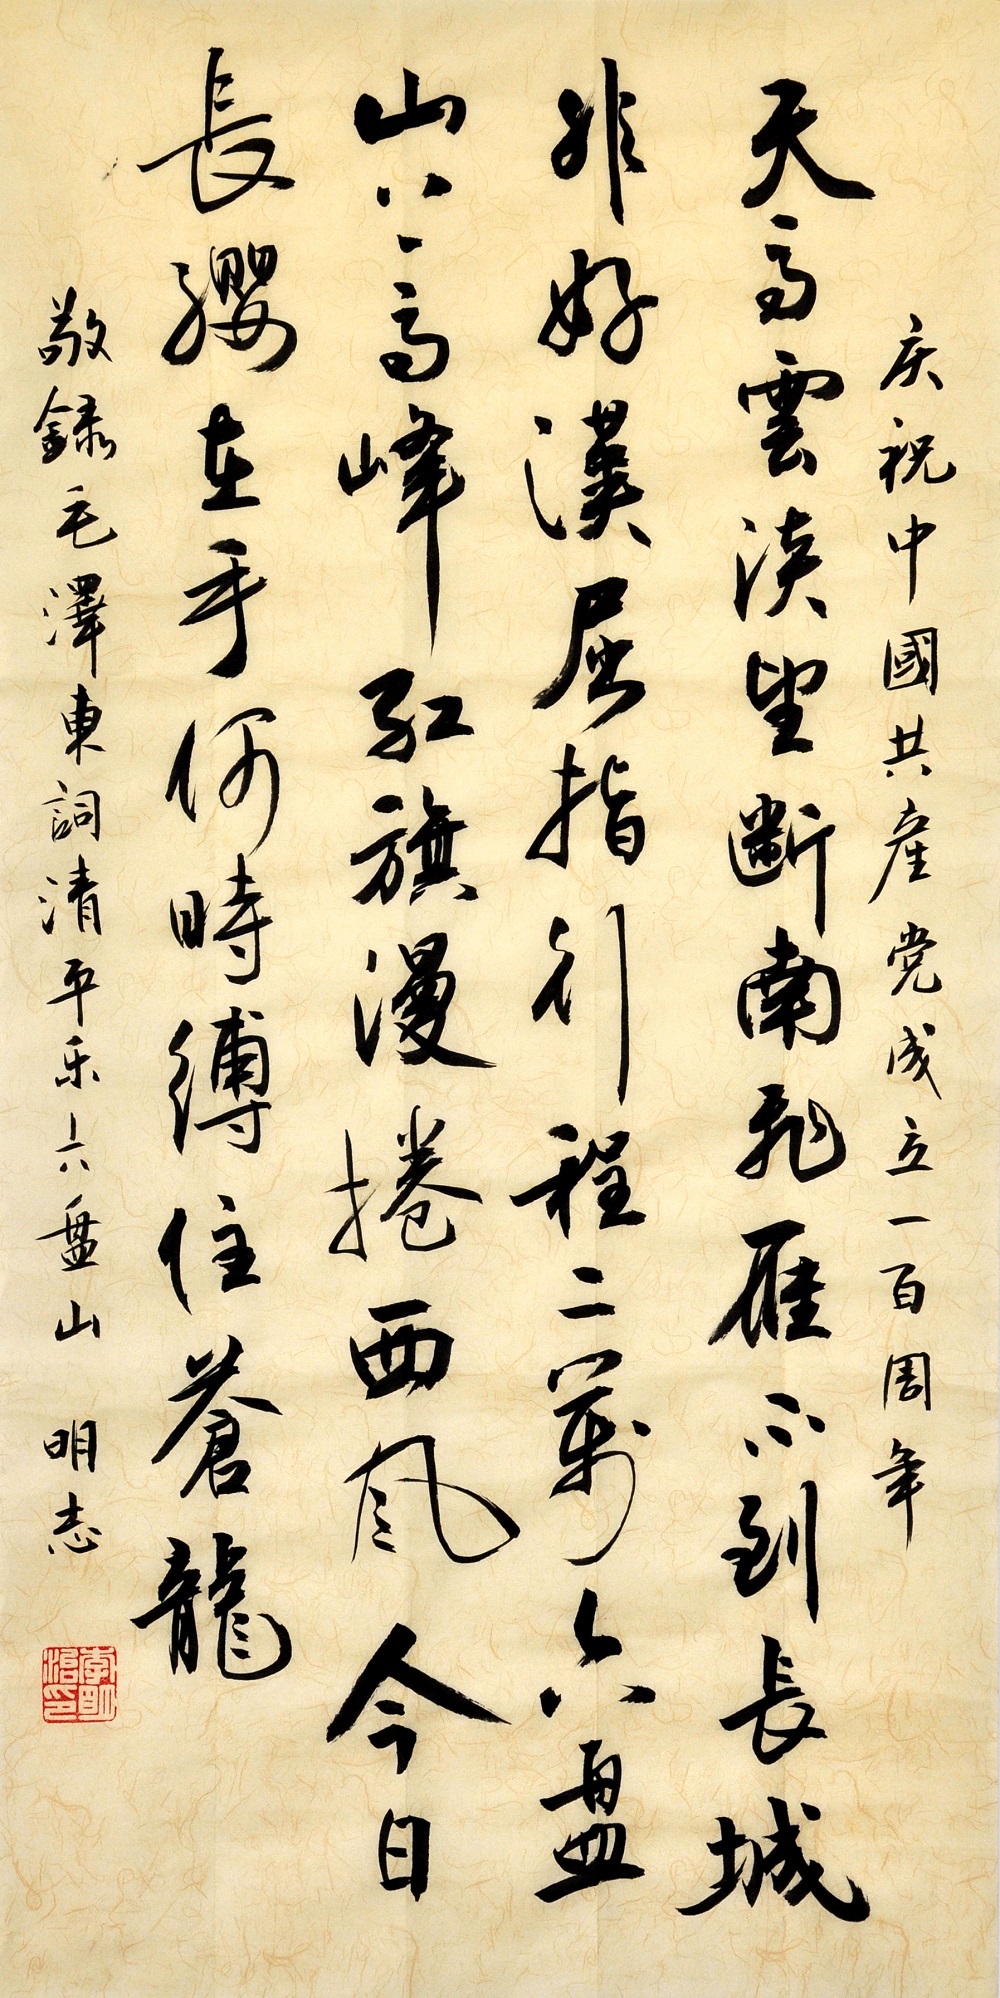 庆祝中國共産党成立一百周年
天高雲淡望斷南飛雁不到長城
非好漢屈指行程二萬六盘
山上高峰紅旗漫捲西風今日
長纓在手何時縛住蒼龍
敬録毛澤東詞清平乐六盘山 明志